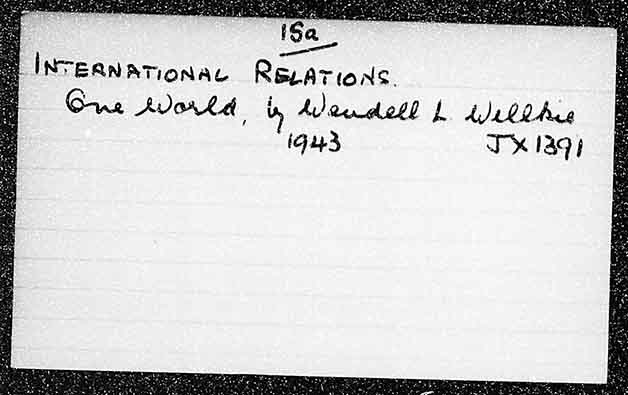 15a
INTERNATIONAL RELATIONS.
One World, by Wendell L. Willkie
1943 JX1391